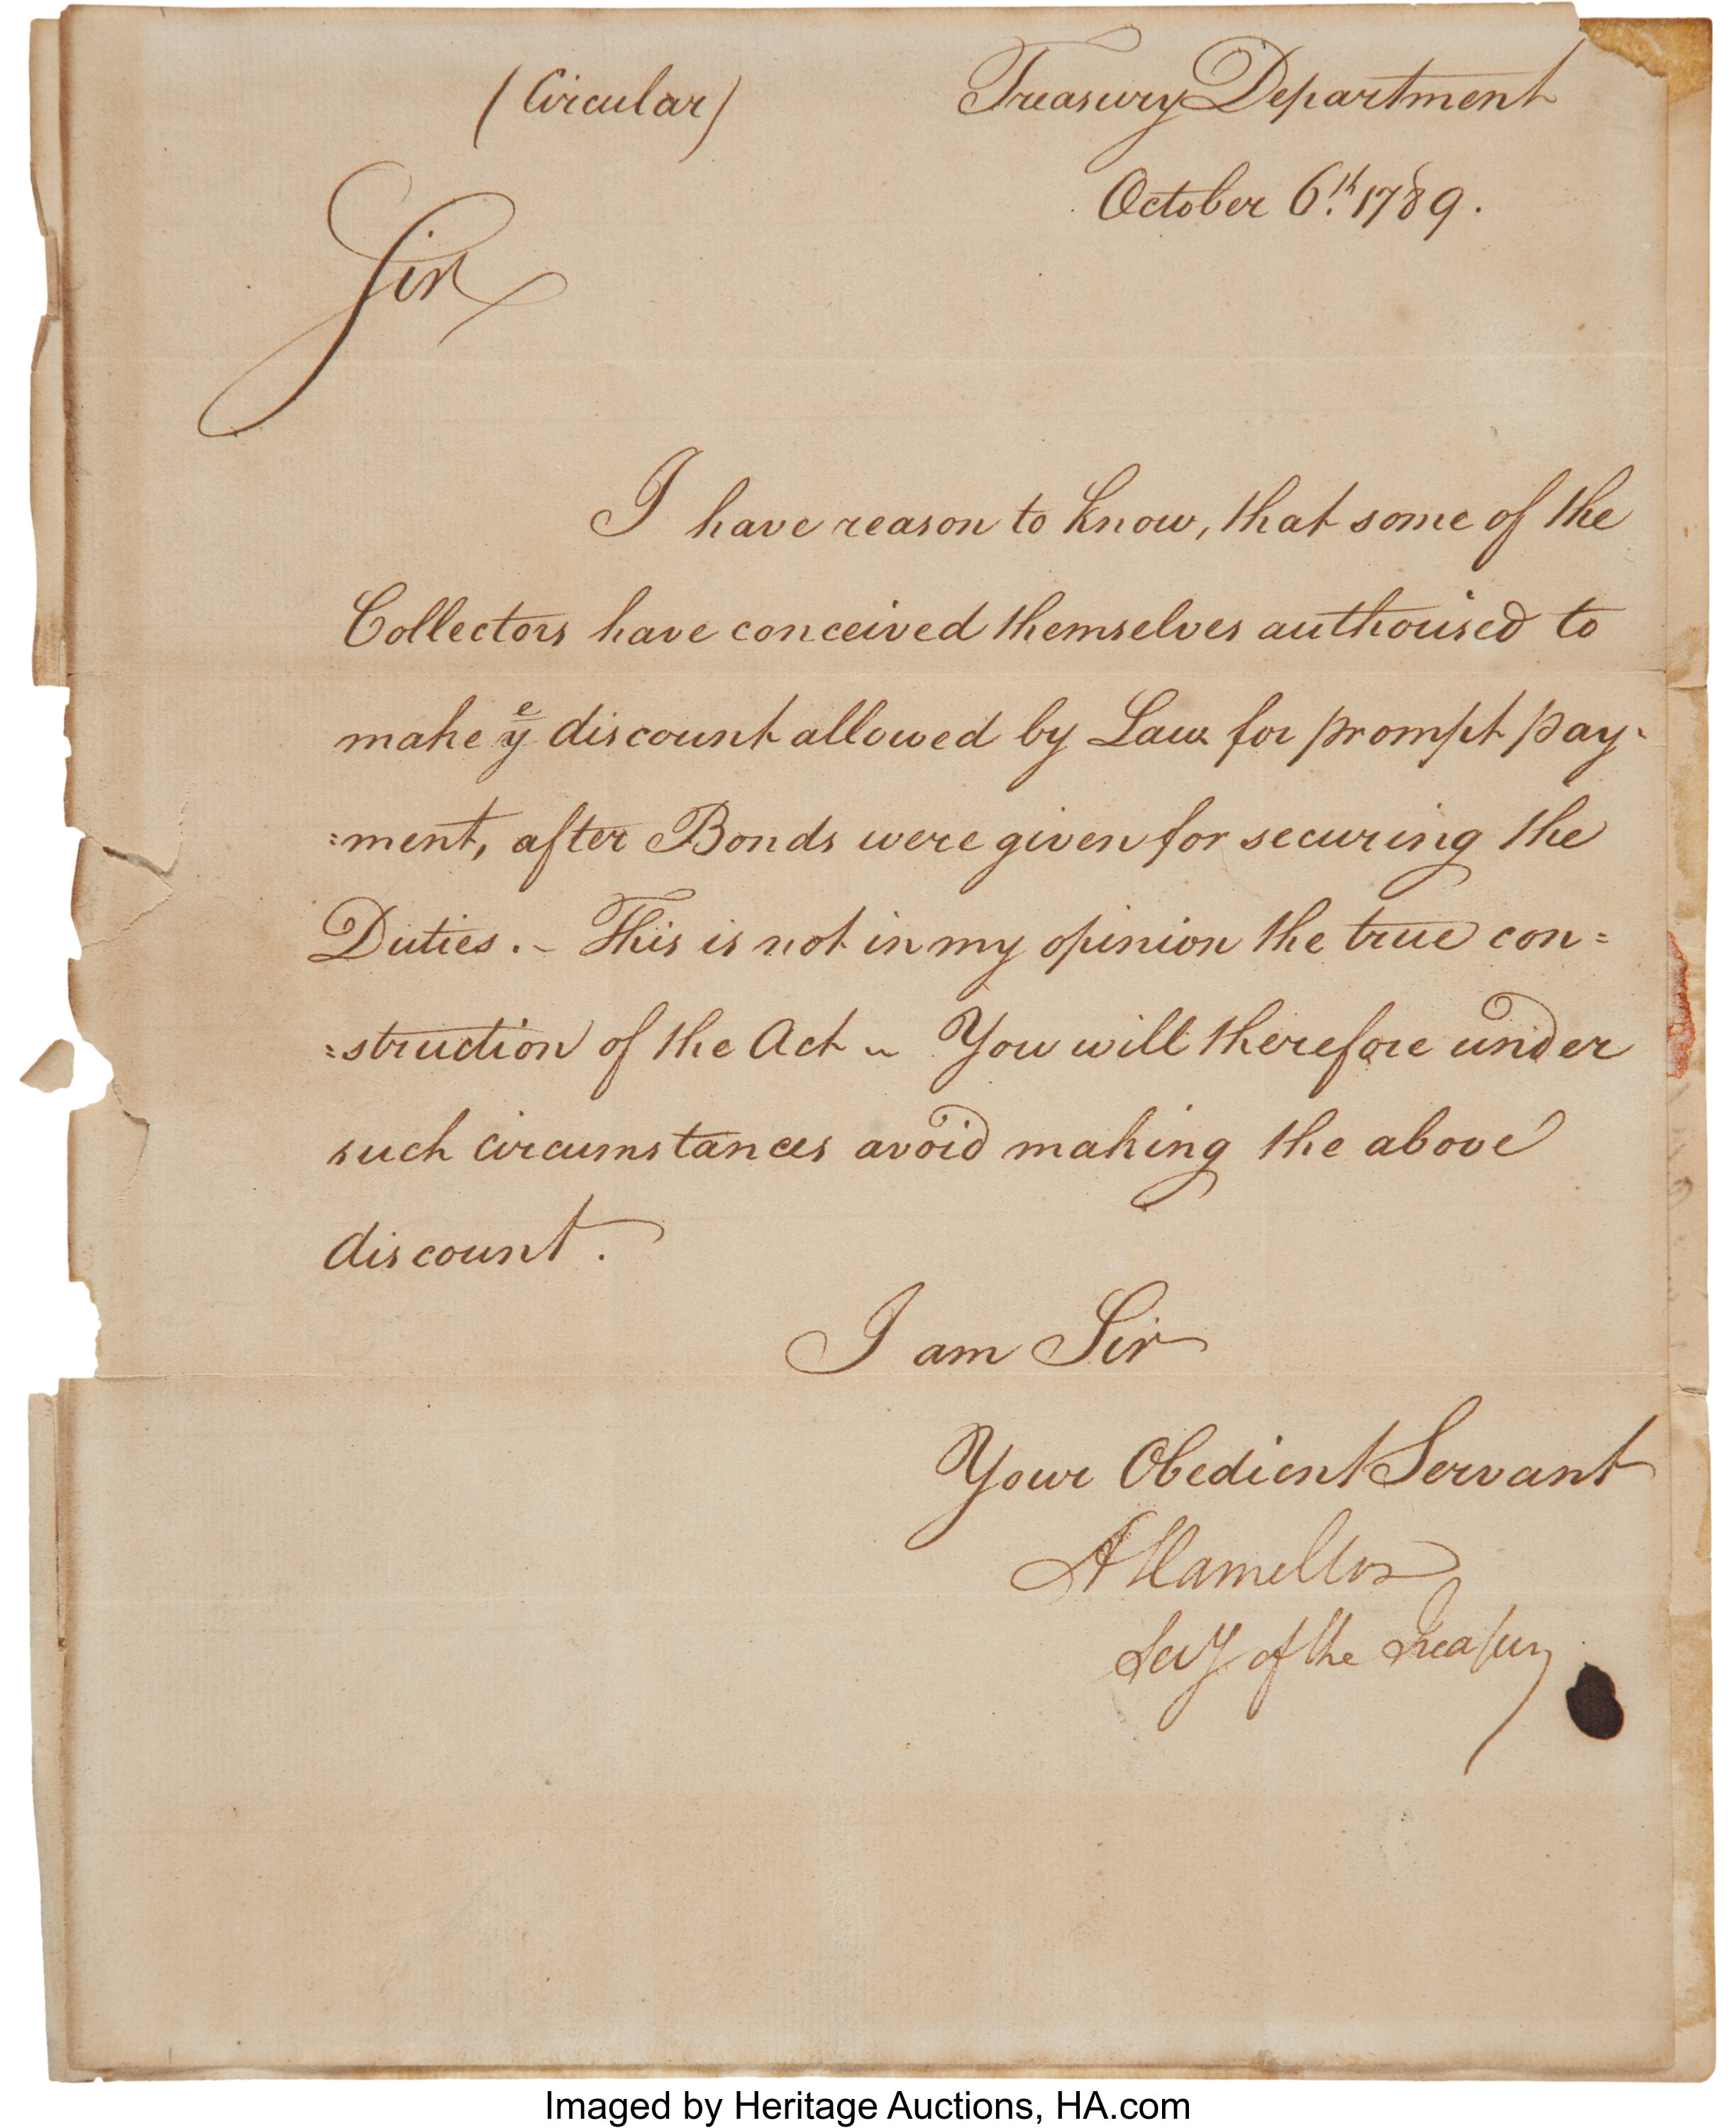 (Circular) Treasury Department
October 6th. 1789.
Sir
I have reason to know, that some of the
Collectors have conceived themselves authorised to
make ye discount allowed by Law for prompt pay-
=ment, after Bonds were given for securing the
Duties. - This is not in my opinion the true con=
=struction of the Act ~ You will therefore under
such circumstances avoid making the above
discount.
I am Sir
Your Obedient Servant
A Hamilton
Secy of the Treasury
Imaged by Heritage Auctions, HA.com